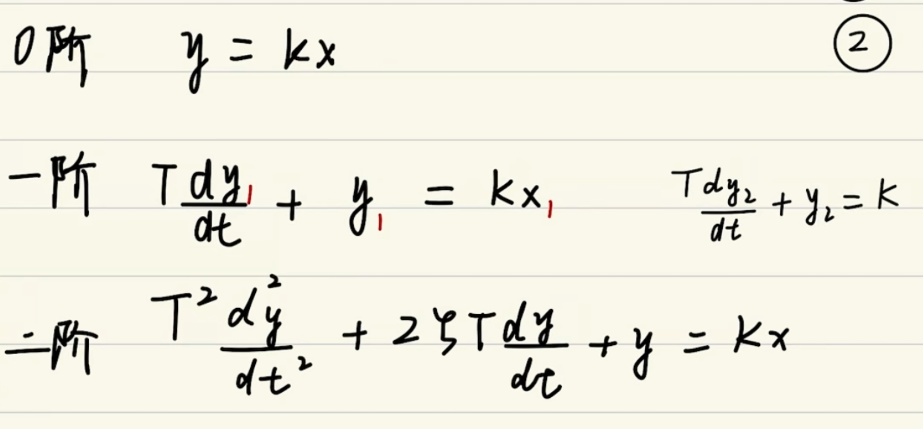 0阶 y = kx ②
一阶 T dy₁/dt + y₁ = kx₁ T dy₂/dt + y₂ = k
二阶 T² d²y/dt² + 2ξT dy/dt + y = kx